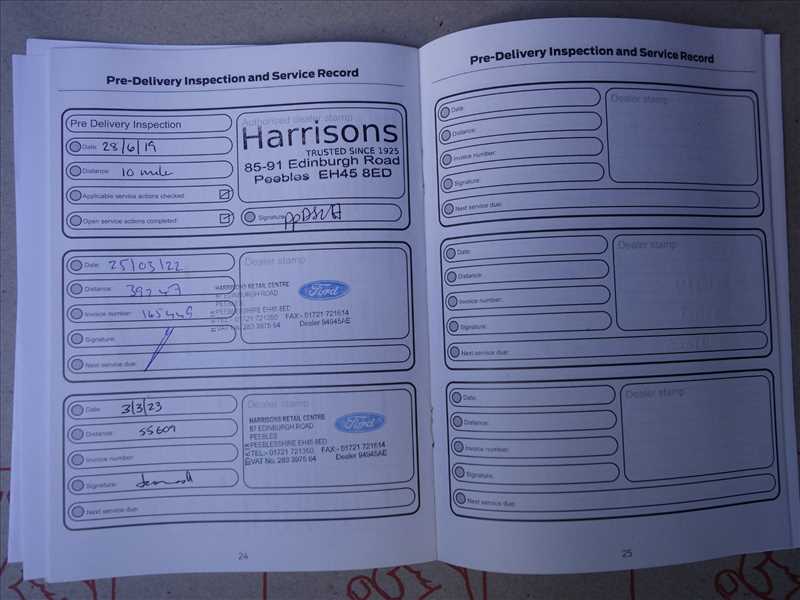 Pre-Delivery Inspection and Service Record
Pre Delivery Inspection
Date: 28/6/19
Distance: 10 mile
Applicable service actions checked:
Open service actions completed:
Authorised dealer stamp
Harrisons
TRUSTED SINCE 1925
85-91 Edinburgh Road
Peebles EH45 8ED
Signature:
Date: 25/03/22
Distance: 39247
Invoice number: 165449
Signature:
Next service due:
Dealer stamp
HARRISONS RETAIL CENTRE
87 EDINBURGH ROAD
PEEBLES
PEEBLESSHIRE EH45 8ED
TEL:- 01721 721350 FAX:- 01721 721614
VAT No. 283 3975 64 Dealer 94945AE
Ford
Date: 3/3/23
Distance: 55609
Invoice number:
Signature:
Next service due:
Dealer stamp
HARRISONS RETAIL CENTRE
87 EDINBURGH ROAD
PEEBLES
PEEBLESSHIRE EH45 8ED
TEL:- 01721 721350 FAX:- 01721 721614
VAT No. 283 3975 64 Dealer 94945AE
Ford
24
Pre-Delivery Inspection and Service Record
Date:
Distance:
Invoice number:
Signature:
Next service due:
Dealer stamp
Date:
Distance:
Invoice number:
Signature:
Next service due:
Dealer stamp
Date:
Distance:
Invoice number:
Signature:
Next service due:
Dealer stamp
25